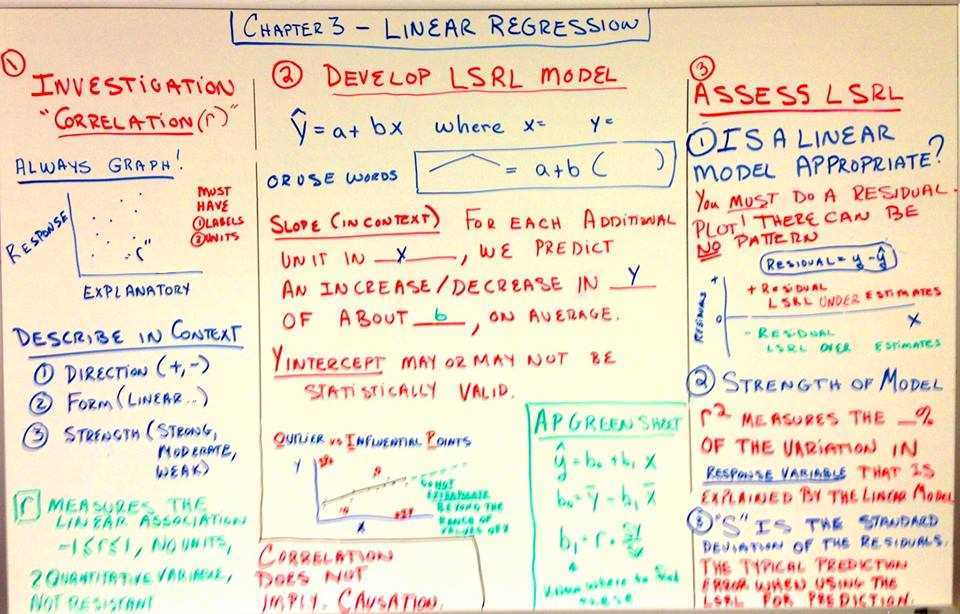 CHAPTER 3 – LINEAR REGRESSION
①
INVESTIGATION
"CORRELATION(r)"
ALWAYS GRAPH!
RESPONSE
"r"
EXPLANATORY
MUST
HAVE
① LABELS
② UNITS
DESCRIBE IN CONTEXT
① DIRECTION (+,-)
② FORM (LINEAR...)
③ STRENGTH (STRONG,
MODERATE,
WEAK)
r MEASURES THE
LINEAR ASSOCIATION
-1≤r≤1, NO UNITS,
2 QUANTITATIVE VARIABLE,
NOT RESISTANT
② DEVELOP LSRL MODEL
ŷ = a + bx where x= y=
OR USE WORDS
= a+b ( )
SLOPE (IN CONTEXT) FOR EACH ADDITIONAL
UNIT IN x, WE PREDICT
AN INCREASE/DECREASE IN Y
OF ABOUT b, ON AVERAGE.
Y INTERCEPT MAY OR MAY NOT BE
STATISTICALLY VALID.
OUTLIER VS INFLUENTIAL POINTS
Y
X
DO NOT
EXTRAPOLATE
BEYOND THE
RANGE OF
VALUES OF X
CORRELATION
DOES NOT
IMPLY CAUSATION.
AP GREEN SHEET
ŷ = b₀ + b₁ x
b₀ = ȳ - b₁ x̄
b₁ = r · sy/sx
Know where to find
these
③
ASSESS LSRL
① IS A LINEAR
MODEL APPROPRIATE?
YOU MUST DO A RESIDUAL
PLOT! THERE CAN BE
NO PATTERN
RESIDUAL = y - ŷ
RESIDUALS
+
0
-
X
+ RESIDUAL
LSRL UNDER ESTIMATES
- RESIDUAL
LSRL OVER ESTIMATES
② STRENGTH OF MODEL
r² MEASURES THE _%
OF THE VARIATION IN
RESPONSE VARIABLE THAT IS
EXPLAINED BY THE LINEAR MODEL
③ "S" IS THE STANDARD
DEVIATION OF THE RESIDUALS.
THE TYPICAL PREDICTION
ERROR WHEN USING THE
LSRL FOR PREDICTION.